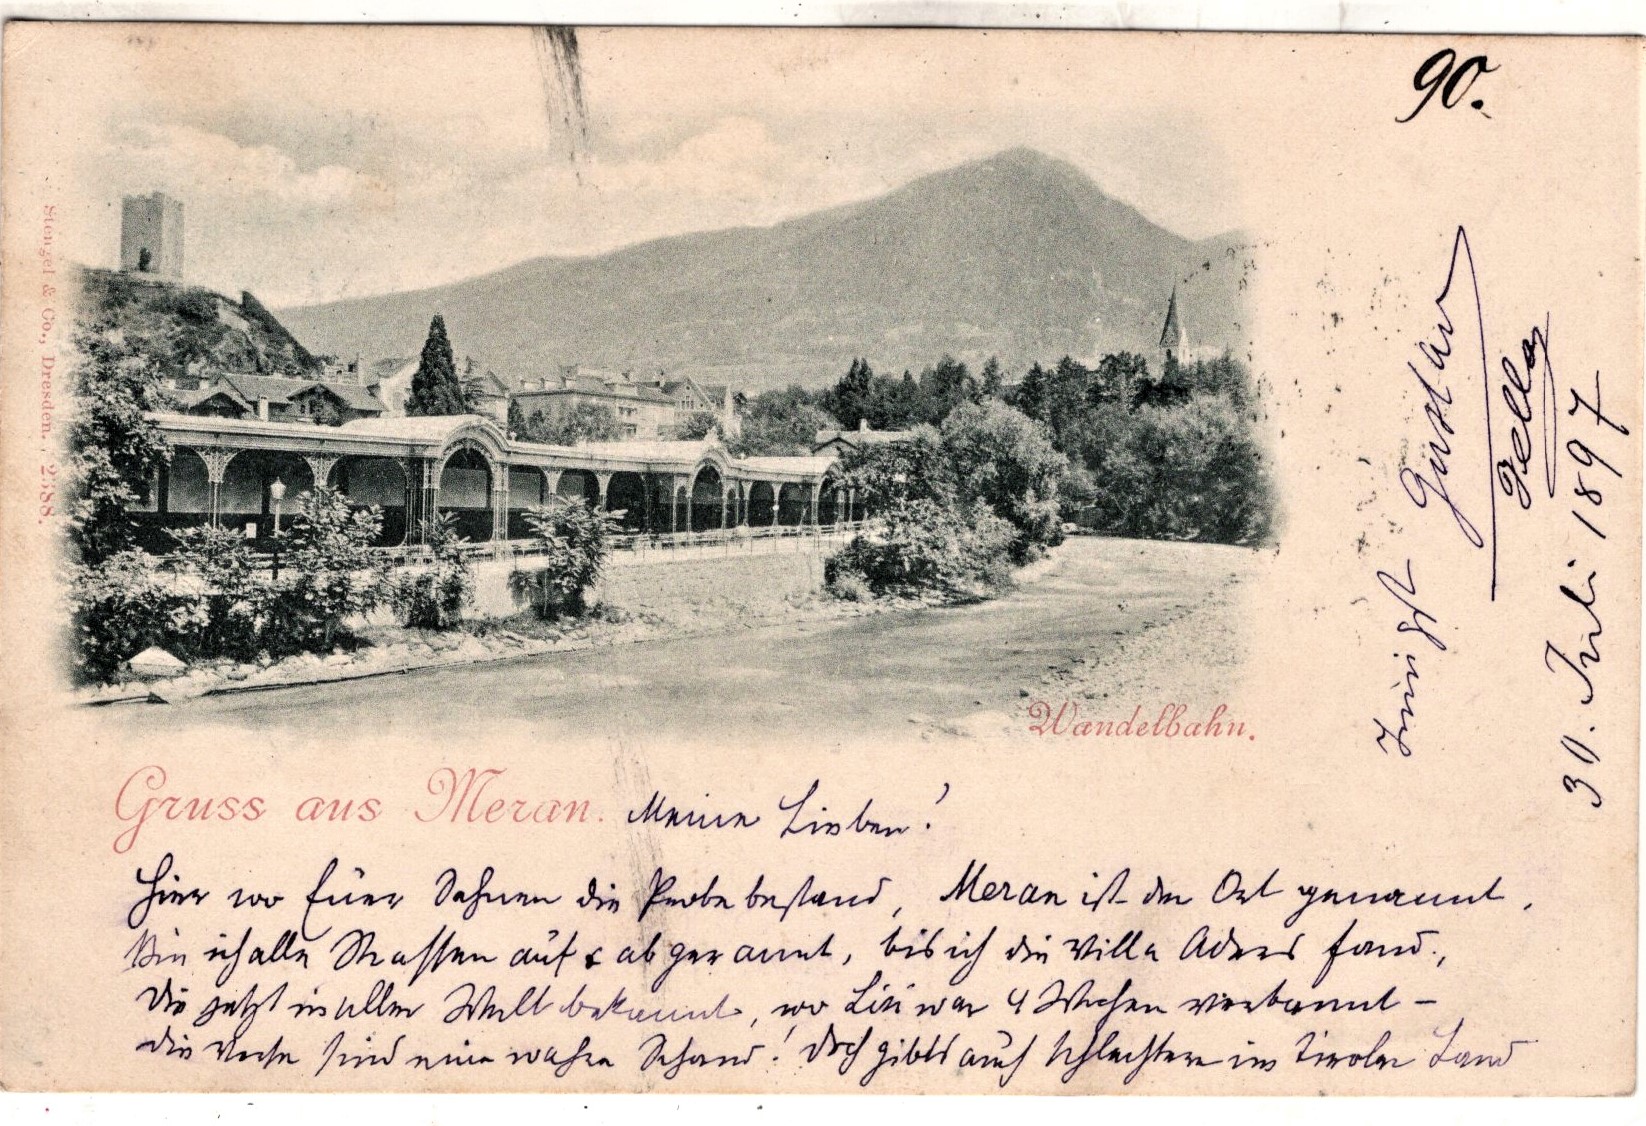 90.
Stengel & Co., Dresden. 2388.
Wandelbahn.
Gruss aus Meran.
Meine Lieben!
Hier wo Euer Sehnen die Probe bestand, Meran ist der Ort genannt,
Bin ich alle Strassen auf & ab gerannt, bis ich die Villa Aders fand,
Die jetzt in aller Welt bekannt, wo Lisi war 4 Wochen verbannt –
die Verse sind eine wahre Schand! doch gibts auch schlechtere im Tiroler Land
Innigst
Gustav
30. Juli 1897